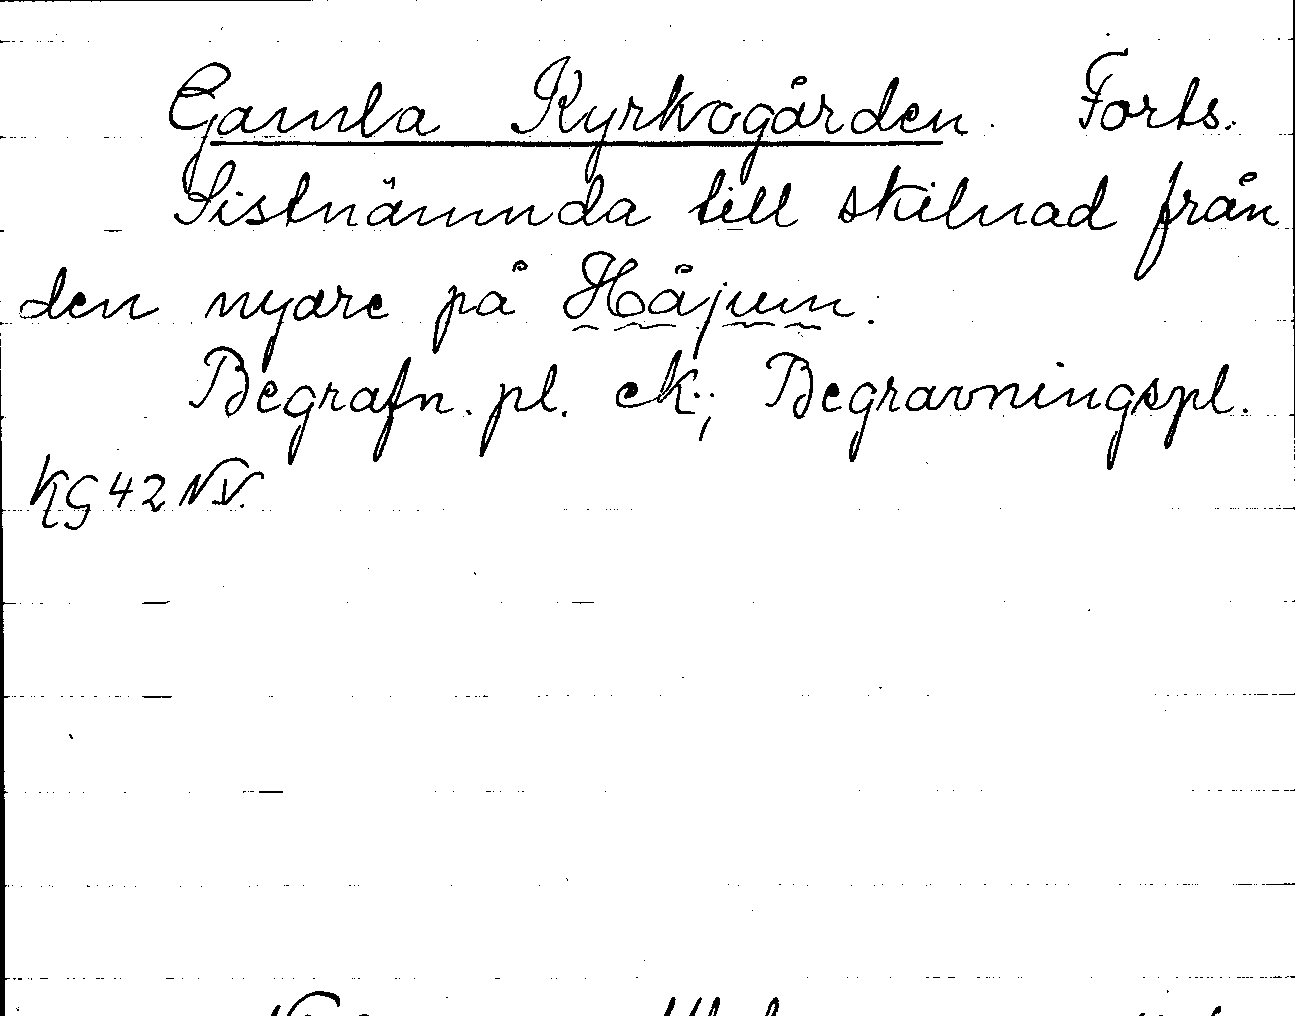 Gamla Kyrkogården. Forts.
Sistnämnda till skilnad från
den nyare på Håjum.
Begrafn. pl. ek.; Begravningspl.
KG 42 NV.